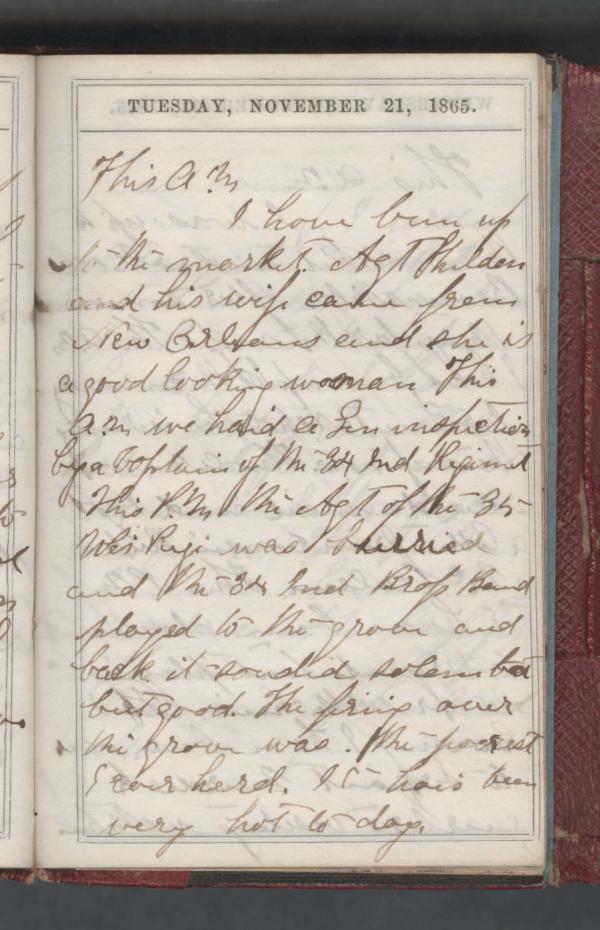 TUESDAY, NOVEMBER 21, 1865.
This A.M
I have bun up
to the market. Agt Thilden
and his wife came from
New Orleans and she is
a good looking woman This
A.M we haid a Gen inspection
by a Captain of the 34 Ind Regiment
This P.M the Agt of the 35
Wis Regi was burried
and the 34 Ind Brass Band
played to the grave and
back it soudid solem
but good. The firing over
the grave was. the poorest
I ever herd. It hais been
very hot to day.